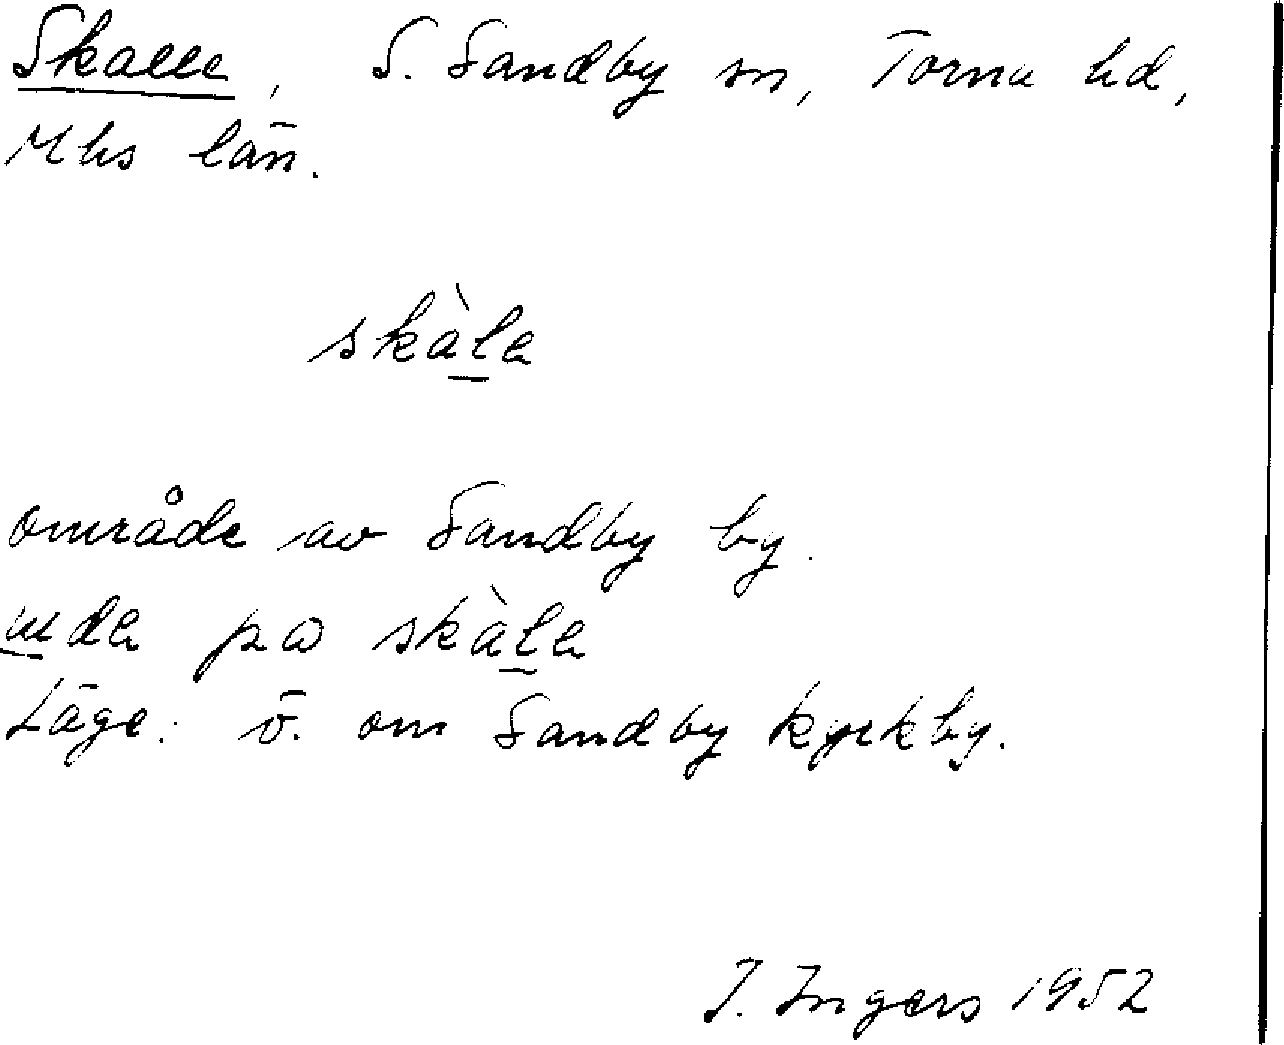 Skalle, S. Sandby sn, Torna hd,
Mhs län.
skàla
område av Sandby by.
på skàla
Läge: ö. om Sandby kyrkby.
I. Ingers 1952